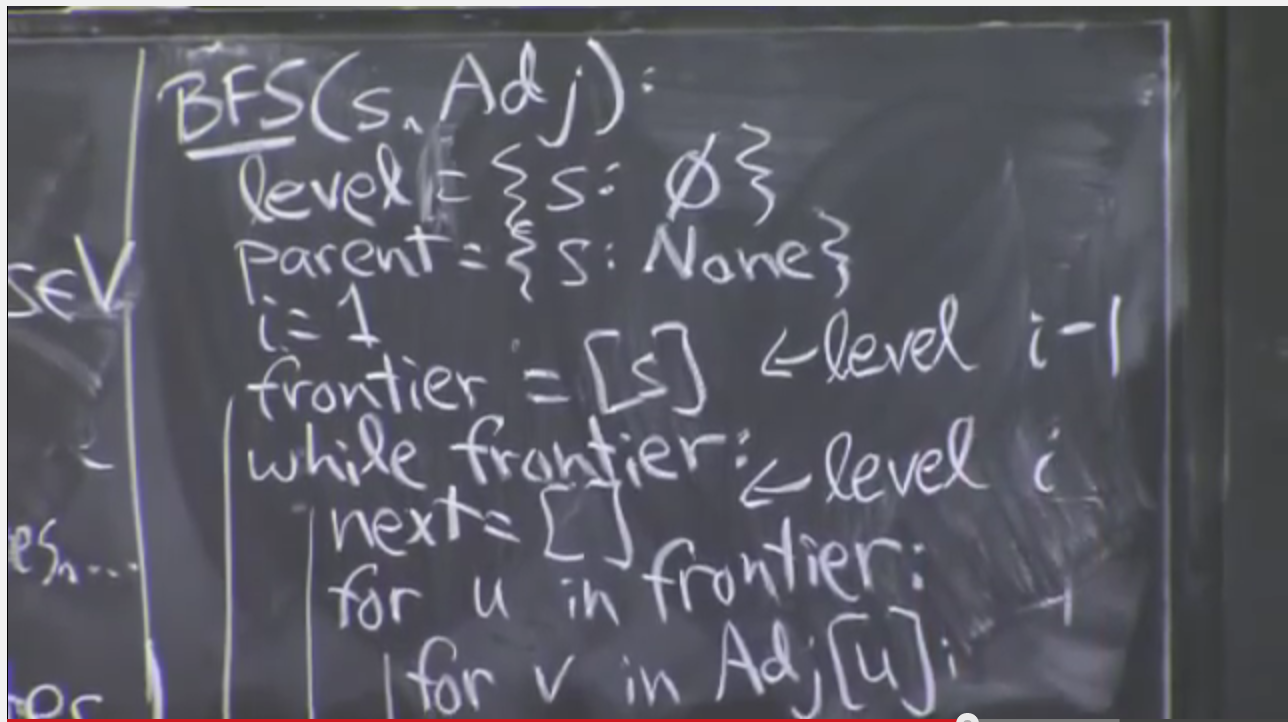 BFS(s, Adj):
level = {s: Ø}
parent = {s: None}
i = 1
frontier = [s] ← level i-1
while frontier:
next = [ ] ← level i
for u in frontier:
for v in Adj[u]:
s∈V